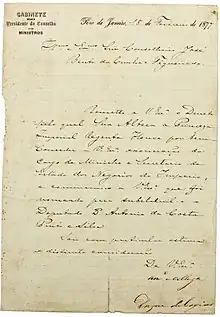 GABINETE
DO
Presidente do Conselho
DE
MINISTROS
Rio de Janeiro, 15 de Fevereiro de 1877
Illmo Exmo Snr Conselheiro José
Bento da Cunha Figueiredo.
Remetto a VEx.a o Decreto
pelo qual Sua Alteza a Princeza
Imperial Regente Houve por bem
Conceder a VEx.a exoneração do
Cargo de Ministro e Secretario de
Estado dos Negocios do Imperio,
e communico a VEx.a que foi
nomeado para substituil-o o
Deputado Dr Antonio da Costa
Pinto e Silva
Sou com particular estima
e distincta consideração
De VEx.a
Duque de Caxias